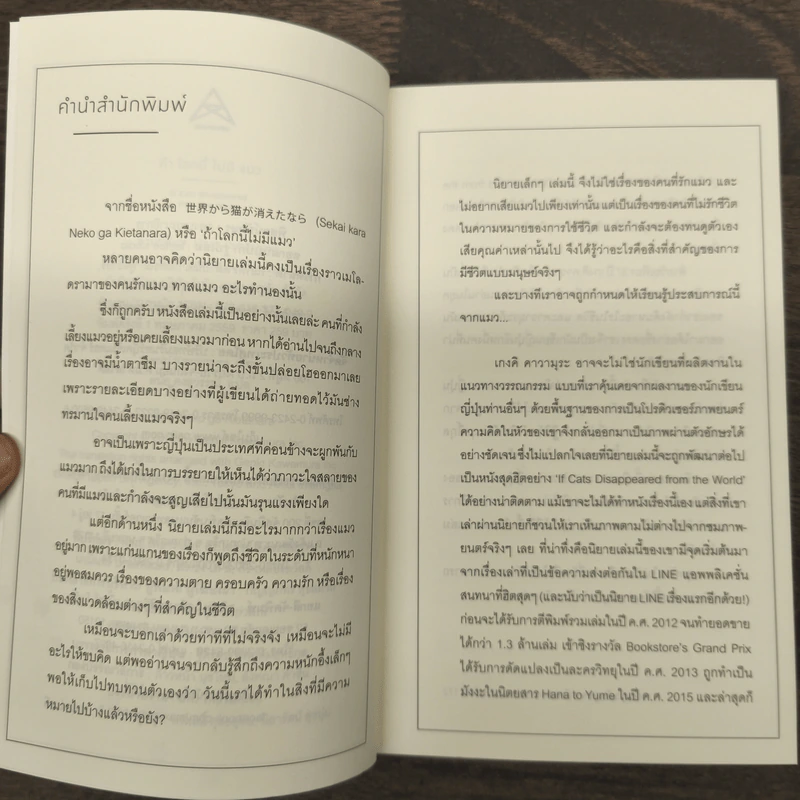 คำนำสำนักพิมพ์
จากชื่อหนังสือ 世界から猫が消えたなら (Sekai kara
Neko ga Kietanara) หรือ 'ถ้าโลกนี้ไม่มีแมว'
หลายคนอาจคิดว่านิยายเล่มนี้คงเป็นเรื่องราวเมโล-
ดรามาของคนรักแมว ทาสแมว อะไรทำนองนั้น
ซึ่งก็ถูกครับ หนังสือเล่มนี้เป็นอย่างนั้นเลยล่ะ คนที่กำลัง
เลี้ยงแมวอยู่หรือเคยเลี้ยงแมวมาก่อน หากได้อ่านไปจนถึงกลาง
เรื่องอาจมีน้ำตาซึม บางรายน่าจะถึงขั้นปล่อยโฮออกมาเลย
เพราะรายละเอียดบางอย่างที่ผู้เขียนได้ถ่ายทอดไว้มันช่าง
ทรมานใจคนเลี้ยงแมวจริงๆ
อาจเป็นเพราะญี่ปุ่นเป็นประเทศที่ค่อนข้างจะผูกพันกับ
แมวมาก ถึงได้เก่งในการบรรยายให้เห็นได้ว่าภาวะใจสลายของ
คนที่มีแมวและกำลังจะสูญเสียไปนั้นมันรุนแรงเพียงใด
แต่อีกด้านหนึ่ง นิยายเล่มนี้ก็มีอะไรมากกว่าเรื่องแมว
อยู่มาก เพราะแก่นแกนของเรื่องก็พูดถึงชีวิตในระดับที่หนักหนา
อยู่พอสมควร เรื่องของความตาย ครอบครัว ความรัก หรือเรื่อง
ของสิ่งแวดล้อมต่างๆ ที่สำคัญในชีวิต
เหมือนจะบอกเล่าด้วยท่าทีที่ไม่จริงจัง เหมือนจะไม่มี
อะไรให้ขบคิด แต่พออ่านจนจบกลับรู้สึกถึงความหนักอึ้งเล็กๆ
พอให้เก็บไปทบทวนตัวเองว่า วันนี้เราได้ทำในสิ่งที่มีความ
หมายไปบ้างแล้วหรือยัง?
นิยายเล็กๆ เล่มนี้ จึงไม่ใช่เรื่องของคนที่รักแมว และ
ไม่อยากเสียแมวไปเพียงเท่านั้น แต่เป็นเรื่องของคนที่ไม่รักชีวิต
ในความหมายของการใช้ชีวิต และกำลังจะต้องทนดูตัวเอง
เสียคุณค่าเหล่านั้นไป จึงได้รู้ว่าอะไรคือสิ่งที่สำคัญของการ
มีชีวิตแบบมนุษย์จริงๆ
และบางทีเราอาจถูกกำหนดให้เรียนรู้ประสบการณ์นี้
จากแมว...
เกงคิ คาวามุระ อาจจะไม่ใช่นักเขียนที่ผลิตงานใน
แนวทางวรรณกรรม แบบที่เราคุ้นเคยจากผลงานของนักเขียน
ญี่ปุ่นท่านอื่นๆ ด้วยพื้นฐานของการเป็นโปรดิวเซอร์ภาพยนตร์
ความคิดในหัวของเขาจึงกลั่นออกมาเป็นภาพผ่านตัวอักษรได้
อย่างชัดเจน ซึ่งไม่แปลกใจเลยที่นิยายเล่มนี้จะถูกพัฒนาต่อไป
เป็นหนังสุดฮิตอย่าง 'If Cats Disappeared from the World'
ได้อย่างน่าติดตาม แม้เขาจะไม่ได้ทำหนังเรื่องนี้เอง แต่สิ่งที่เขา
เล่าผ่านนิยายก็ชวนให้เราเห็นภาพตามไม่ต่างไปจากชมภาพ-
ยนตร์จริงๆ เลย ที่น่าทึ่งคือนิยายเล่มนี้ของเขามีจุดเริ่มต้นมา
จากเรื่องเล่าที่เป็นข้อความส่งต่อกันใน LINE แอพพลิเคชั่น
สนทนาที่ฮิตสุดๆ (และนับว่าเป็นนิยาย LINE เรื่องแรกอีกด้วย!)
ก่อนจะได้รับการตีพิมพ์รวมเล่มในปี ค.ศ. 2012 จนทำยอดขาย
ได้กว่า 1.3 ล้านเล่ม เข้าชิงรางวัล Bookstore's Grand Prix
ได้รับการดัดแปลงเป็นละครวิทยุในปี ค.ศ. 2013 ถูกทำเป็น
มังงะในนิตยสาร Hana to Yume ในปี ค.ศ. 2015 และล่าสุดก็